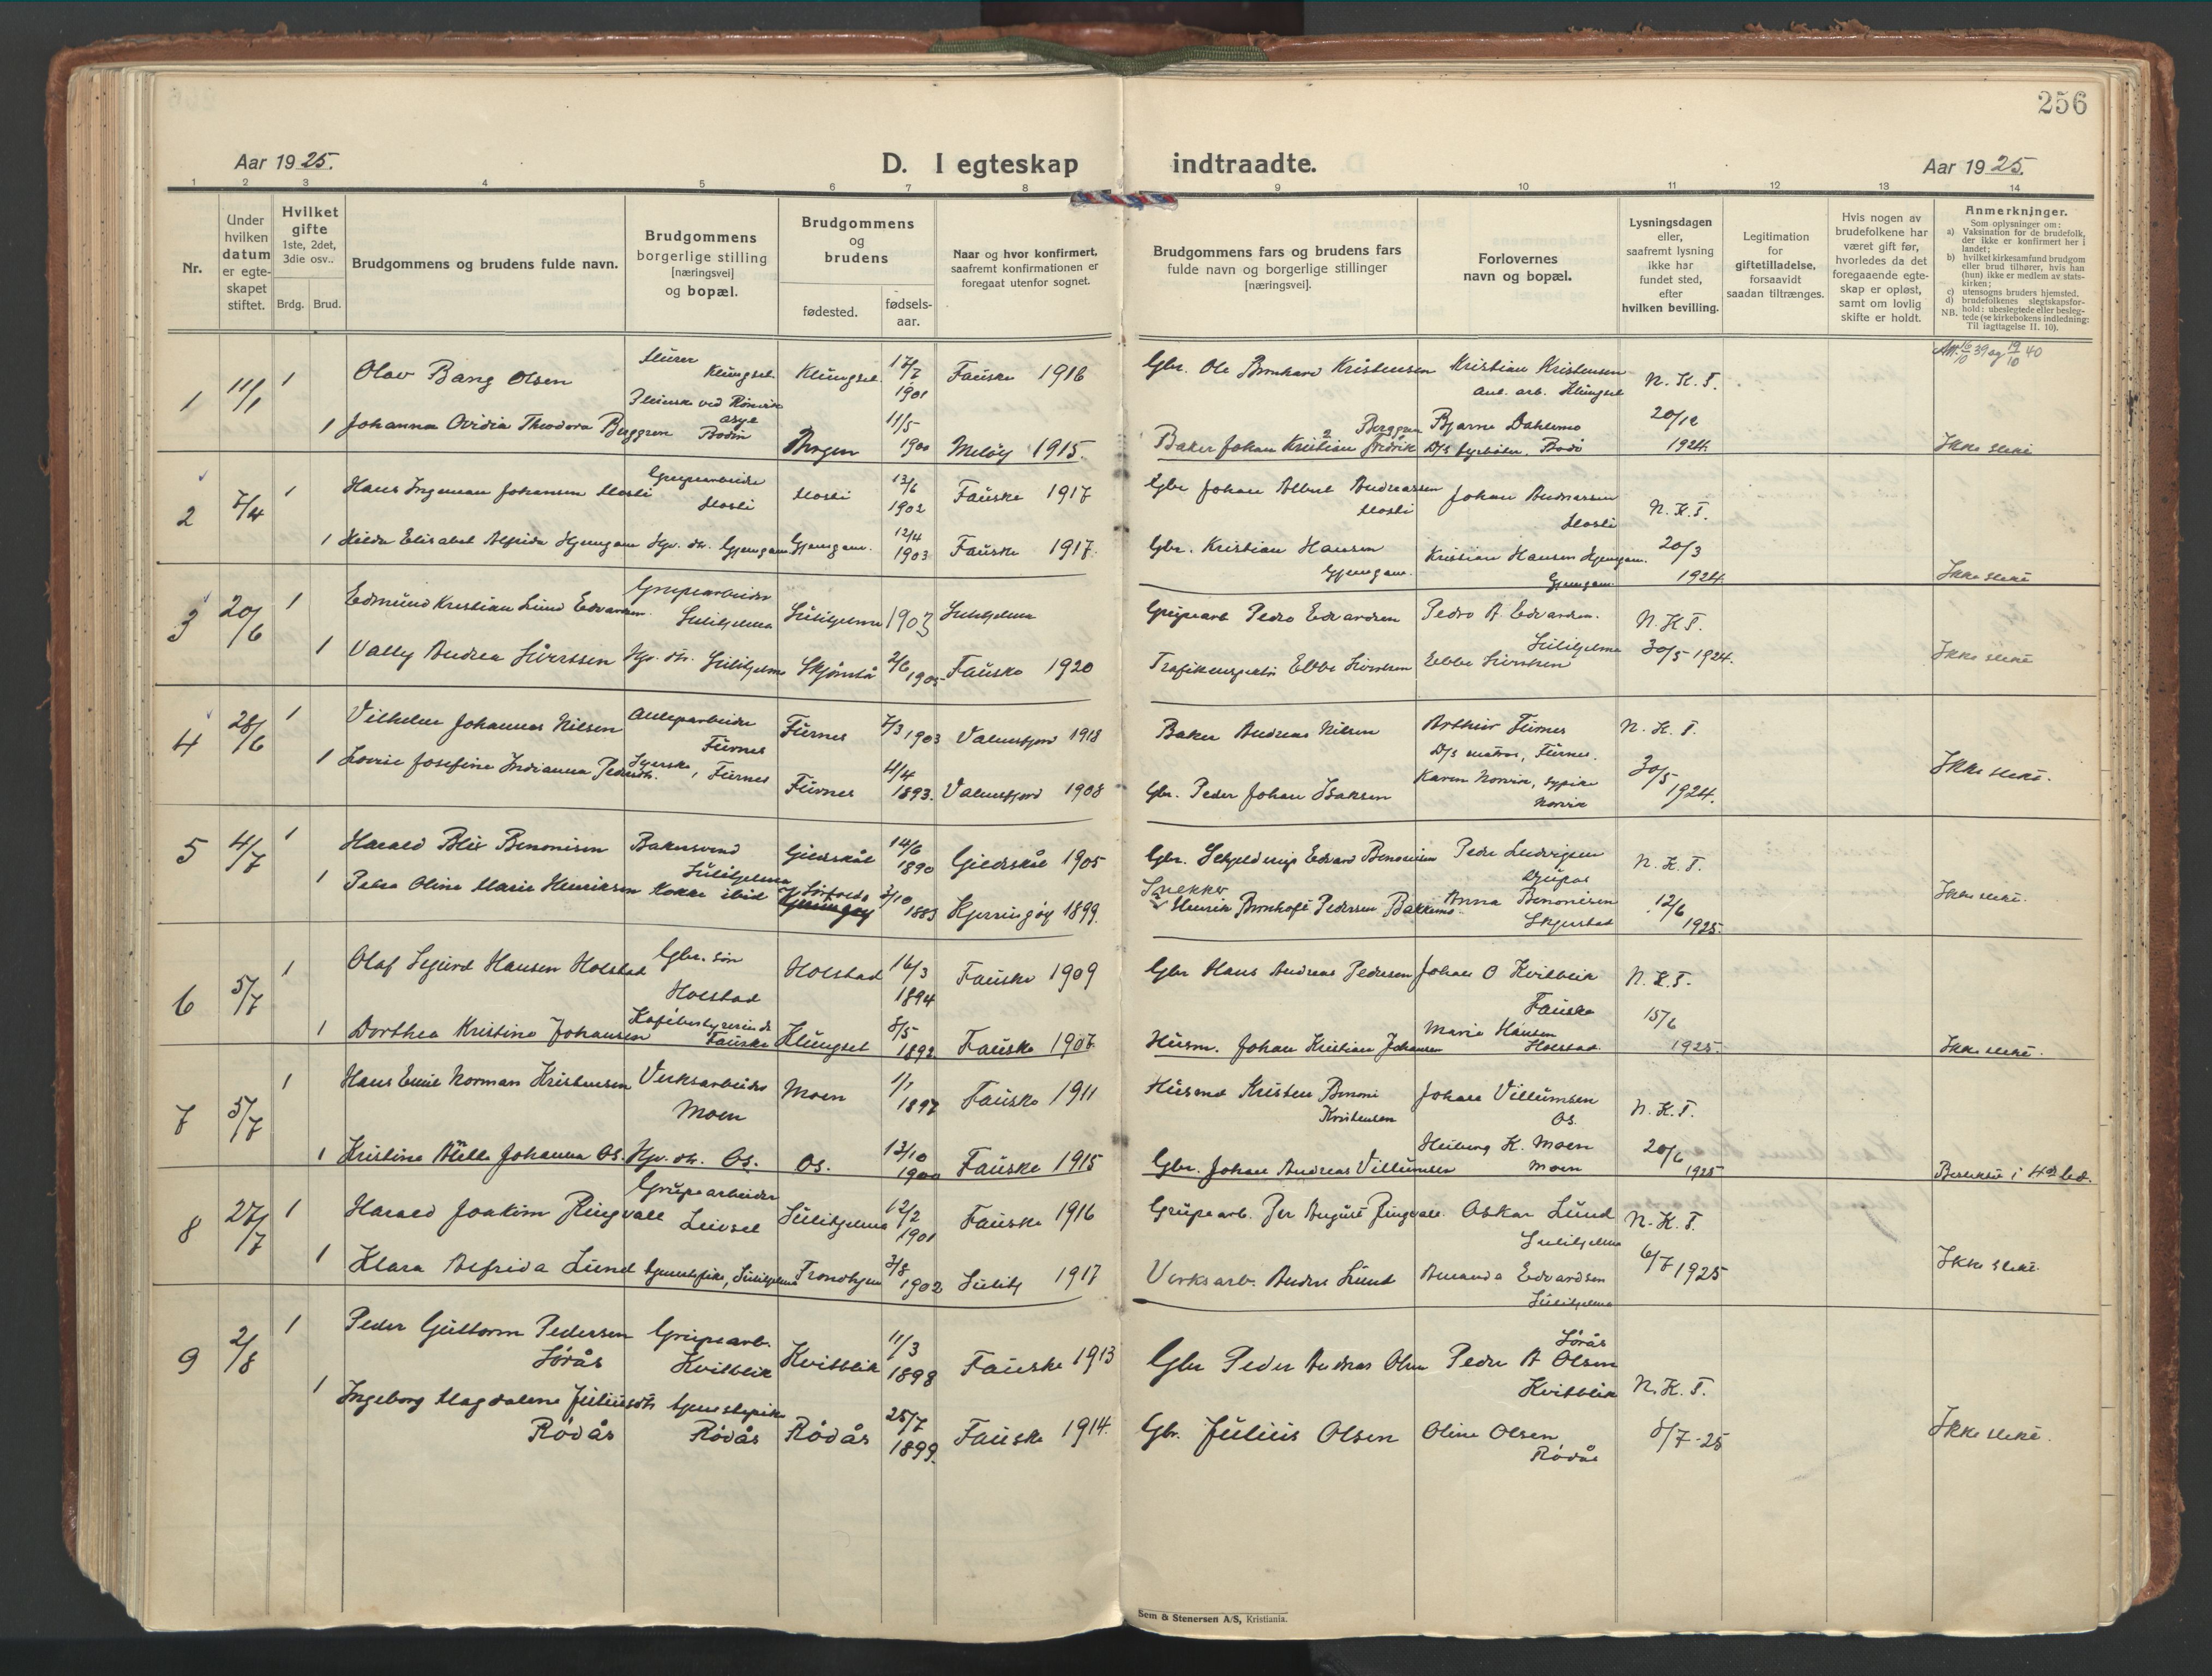 256
Aar 1925.
D. I egteskap indtraadte.
Aar 1925.
1 2 3 4 5 6 7 8 9 10 11 12 13 14
Nr.
Under hvilken datum er egte-skapet stiftet.
Hvilket gifte 1ste, 2det, 3die osv..
Brdg. Brud.
Brudgommens og brudens fulde navn.
Brudgommens borgerlige stilling [næringsvei] og bopæl.
Brudgommens og brudens
fødested.
fødsels-aar.
Naar og hvor konfirmert, saafremt konfirmationen er foregaat utenfor sognet.
Brudgommens fars og brudens fars fulde navn og borgerlige stillinger [næringsvei].
Forlovernes navn og bopæl.
Lysningsdagen eller, saafremt lysning ikke har fundet sted, efter hvilken bevilling.
Legitimation for giftetilladelse, forsaavidt saadan tiltrænges.
Hvis nogen av brudefolkene har været gift før, hvorledes da det foregaaende egte-skap er opløst, samt om lovlig skifte er holdt.
Anmerkninger.
Som oplysninger om:
a) Vaksination for de brudefolk, der ikke er konfirmert her i landet;
b) hvilket kirkesamfund brudgom eller brud tilhører, hvis han (hun) ikke er medlem av stats-kirken;
c) utensogns bruders hjemsted.
d) brudefolkenes slegtskapsfor-hold: ubeslegtede eller besleg-tede (se kirkebokens indledning:
NB. Til iagttagelse II. 10).
Att. 16/10 39 og 19/10 40
1 11/1 1 Olav Bang Olsen Murer Klungset Klungset 17/7 1901 Fauske 1916 Gbr. Ole Bernhard Kristensen Kristian Kristensen anl. arb. Klungset N. K. T.
1 Johanna Ovidia Theodora Berggren Pleierske ved Rønvik asyl Bodin Brogen 11/5 1900 Meløy 1915. Baker Johan Kristian Fredrik Berggren Bjarne Dahlemo D/S fyrbøter, Bodø 20/12 1924. Ikke slekt
2 7/4 1 Hans Ingeman Johansen Mosti Grupearbeider Mosti Mosti 13/6 1902 Fauske 1917 Gbr Johan Albert Andreassen Mosti Johan Andreassen Mosti N. K. T.
1 Hilda Elisabet Alfrida Gjemgam Hjv. dtr. Gjemgam Gjemgam. 12/4 1903 Fauske 1917. Gbr. Kristian Hansen Gjemgam. Kristian Hansen Gjemgam. 20/3 1924 Ikke slekt
3 20/6 1 Edmund Kristian Lund Edvardsen Grupearbeider Sulitjelma Sulitjelma 1903 Sulitjelma Grupearb Pedro Edvardsen Pedro A. Edvardsen. Sulitjelma N. K. T.
1 Vally Andrea Sivertsen Hjv. dtr. Sulitjelma Skjønstå 2/6 1905 Fauske 1920 Trafikinspektør Ebbe Sivertsen Ebbe Sivertsen 30/5 1924. Ikke slekt
4 28/6 1 Vilhelm Johannes Nilsen Anlegsarbeider Furnes Furnes 7/3 1903 Valnesfjord 1918 Baker Andreas Nilsen Arthur Furnes D/S matros, Furnes. N. K. T.
1 Lovise Josefine Indianna Pedersdtr. Syerske, Furnes Furnes 4/4 1893. Valnesfjord 1908 Gbr. Peder Johan Isaksen Karen Norvik, sypike Norvik 30/5 1924. Ikke slekt.
5 4/7 1 Harald Blix Benonisen Bakersvend Sulitjelma Gildeskål 14/6 1890 Gildeskål 1905 Gbr. Schjelderup Edvard Benonisen Peder Ludvigsen Djupos N. K. T.
1 Petra Oline Marie Henriksen Kokke ibid Sørfold 3/10 1883 Kjerringøy 1899. Snekker Henrik Bernhoft Pedersen Bakkemo. Anna Benonisen Skjerstad 12/6 1925. Ikke slekt.
6 5/7 1 Olaf Sigurd Hansen Holstad Gbr. søn Holstad Holstad 16/3 1894 Fauske 1909 Gbr Hans Andreas Pedersen Johan O Kvitblik Fauske N. K. T.
1 Dorthea Kristine Johansen Kafébestyrerinde Fauske Klungset 8/5 1892 Fauske 1907. Husm. Johan Kristian Johansen Marie Hansen Holstad 15/6 1925. Ikke slekt.
7 5/7 1 Hans Emil Norman Kristensen Verksarbeider Moen Moen 1/1 1897 Fauske 1911 Husmd Kristen Benoni Kristensen Johan Villumsen Os. N. K. T.
1 Kristine Mille Johanna Os. Hjv. dtr. Os. Os. 13/10 1900 Fauske 1915 Gbr. Johan Andreas Villumsen Heiberg K. Moen Moen 20/6 1925 Beslekt i 4de led.
8 27/7 1 Harald Joakim Ringvall Grupearbeider Leivset Sulitjelma 12/2 1901 Fauske 1916 Grupearb. Per August Ringvall. Oskar Lund Sulitjelma N. K. T.
1 Klara Alfrida Lund tjenestpike, Sulitjelma Trondhjem 3/8 1902 Sulitj 1917 Verksarb. Anders Lund Amanda Edvardsen Sulitjelma 6/7 1925 Ikke slekt.
9 2/8 1 Peder Guttorm Pedersen Sørås Grupearb. Kvitblik Kvitblik 11/3 1898 Fauske 1913 Gbr Peder Andreas Olsen Peder A Olsen Sørås Kvitblik N. K. T.
1 Ingeborg Magdalene Juliusdtr Rødås tjenestepike Rødås Rødås 25/7 1899. Fauske 1914. Gbr. Julius Olsen Oline Olsen Rødås 5/7-25 Ikke slekt.
Sem & Stenersen A/S, Kristiania.